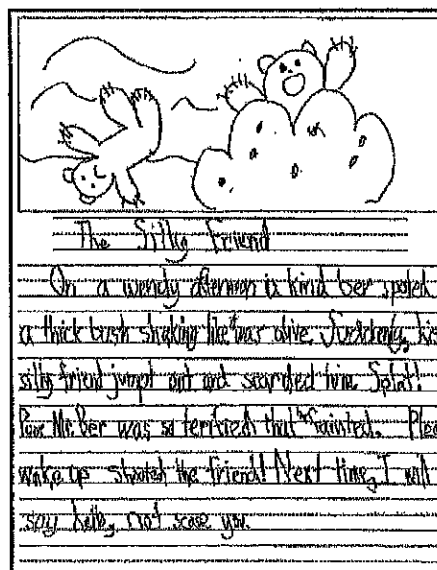 The Silly friend
On a wendy afternoon a kind ber spoted
a thick bush shaking like it was alive. Suddenly, his
silly friend jumpt out and scarded him. Splat!
Poor Mr. Ber was so terfried that he fainted. Plea
wake up shouted the friend! Next time, I will
say hello, not scase you.